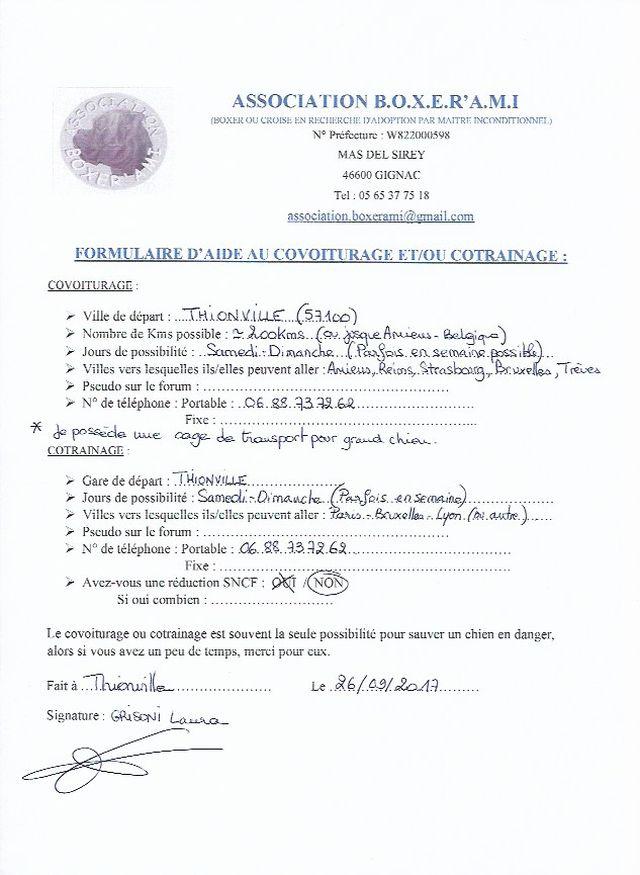 ASSOCIATION
BOXERAMI
ASSOCIATION B.O.X.E.R'A.M.I
(BOXER OU CROISE EN RECHERCHE D'ADOPTION PAR MAITRE INCONDITIONNEL)
N° Préfecture : W822000598
MAS DEL SIREY
46600 GIGNAC
Tel : 05 65 37 75 18
association.boxerami@gmail.com
FORMULAIRE D'AIDE AU COVOITURAGE ET/OU COTRAINAGE :
COVOITURAGE :
➤ Ville de départ : THIONVILLE (57100)
➤ Nombre de Kms possible : ≃ 200kms (ou jusque Amiens - Belgique)
➤ Jours de possibilité : Samedi - Dimanche (Parfois en semaine possible)
➤ Villes vers lesquelles ils/elles peuvent aller : Amiens, Reims, Strasbourg, Bruxelles, Trèves
➤ Pseudo sur le forum :
➤ N° de téléphone : Portable : 06.88.73.72.62
Fixe :
* Je possède une cage de transport pour grand chien.
COTRAINAGE :
➤ Gare de départ : THIONVILLE
➤ Jours de possibilité : Samedi - Dimanche (Parfois en semaine)
➤ Villes vers lesquelles ils/elles peuvent aller : Paris - Bruxelles - Lyon (ou autre)
➤ Pseudo sur le forum :
➤ N° de téléphone : Portable : 06.88.73.72.62
Fixe :
➤ Avez-vous une réduction SNCF : OUI / NON
Si oui combien :
Le covoiturage ou cotrainage est souvent la seule possibilité pour sauver un chien en danger,
alors si vous avez un peu de temps, merci pour eux.
Fait à Thionville Le 26/09/2017
Signature : GRISONI Laura